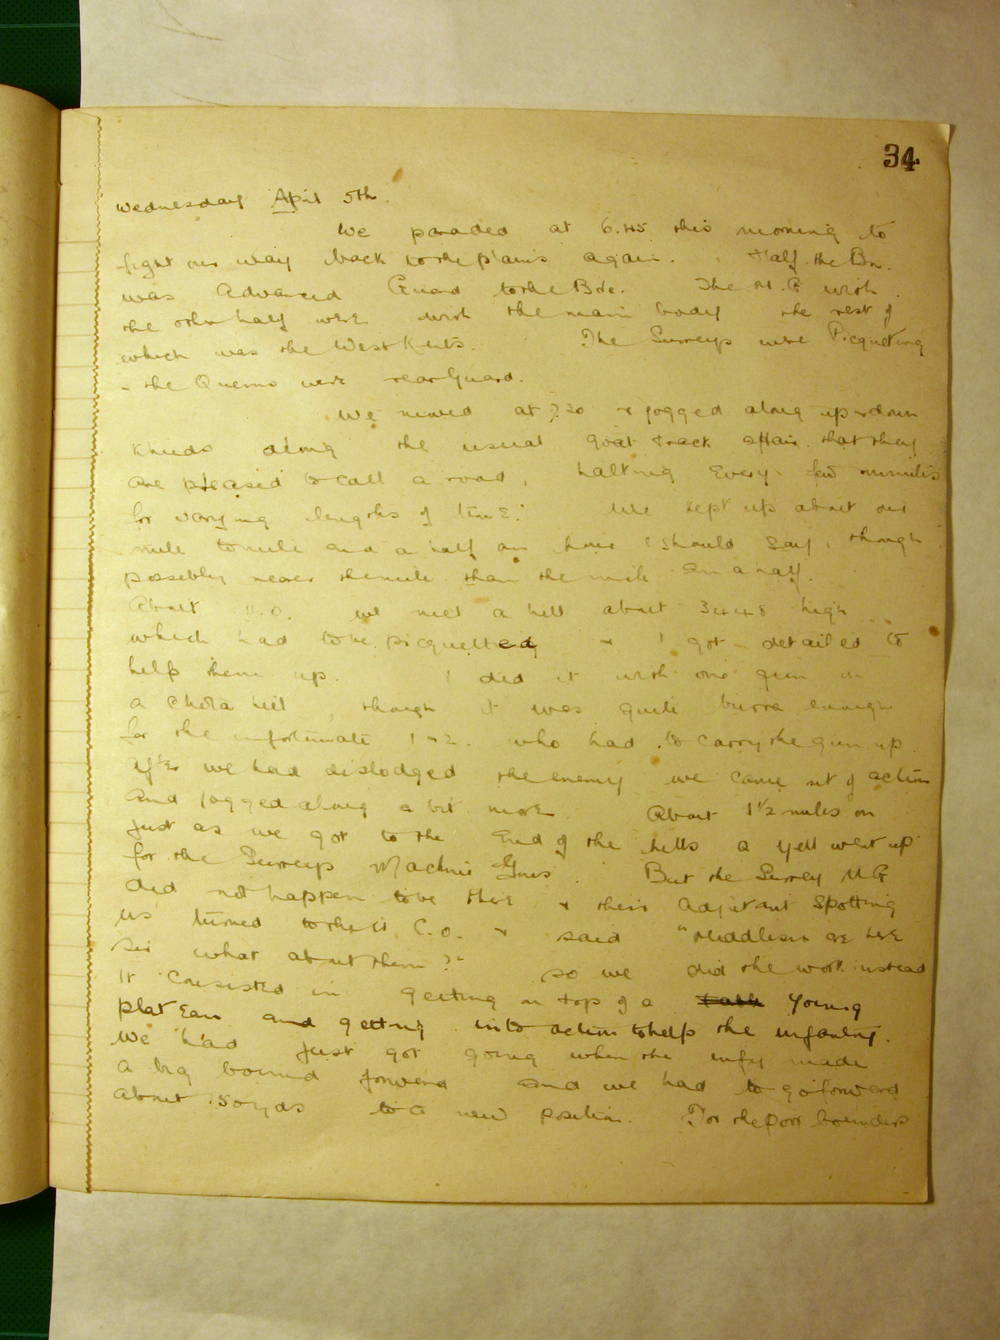 34
Wednesday April 5th.
We paraded at 6.45 this morning to
fight our way back to the plains again. Half the Bn.
was Advanced Guard to the Bde. The M.G. with
the other half were with the main body the rest of
which was the West Kents. The Surreys were Picqueting
& the Queens were rear Guard.
We moved at 7.30 & jogged along up & down
khuds along the usual goat track affair that they
are pleased to call a road, halting every few minutes
for varying lengths of time. We kept up about one
mile to mile and a half an hour I should say, though
possibly nearer the mile than the mile an a half.
About 11.0. we met a hill about 3448 high
which had to be picquetted & I got detailed to
help them up. I did it with one gun on
a chota hill, though it was quite burra enough
for the unfortunate 1 & 2. who had to carry the gun up.
After we had dislodged the enemy we came out of action
and jogged along a bit more. About 1½ miles on
just as we got to the end of the hills a yell went up
for the Surreys Machine Guns. But the Surrey M G
did not happen to be there & their Adjutant spotting
us turned to their C.O. & said "Middlesex are here
Sir what about them?" so we did the work instead
It consisted in getting on top of a young
plateau and getting into action to help the infantry.
We had just got going when the infy made
a big bound forward and we had to go forward
about 150 yds to a new position. For the poor bounders